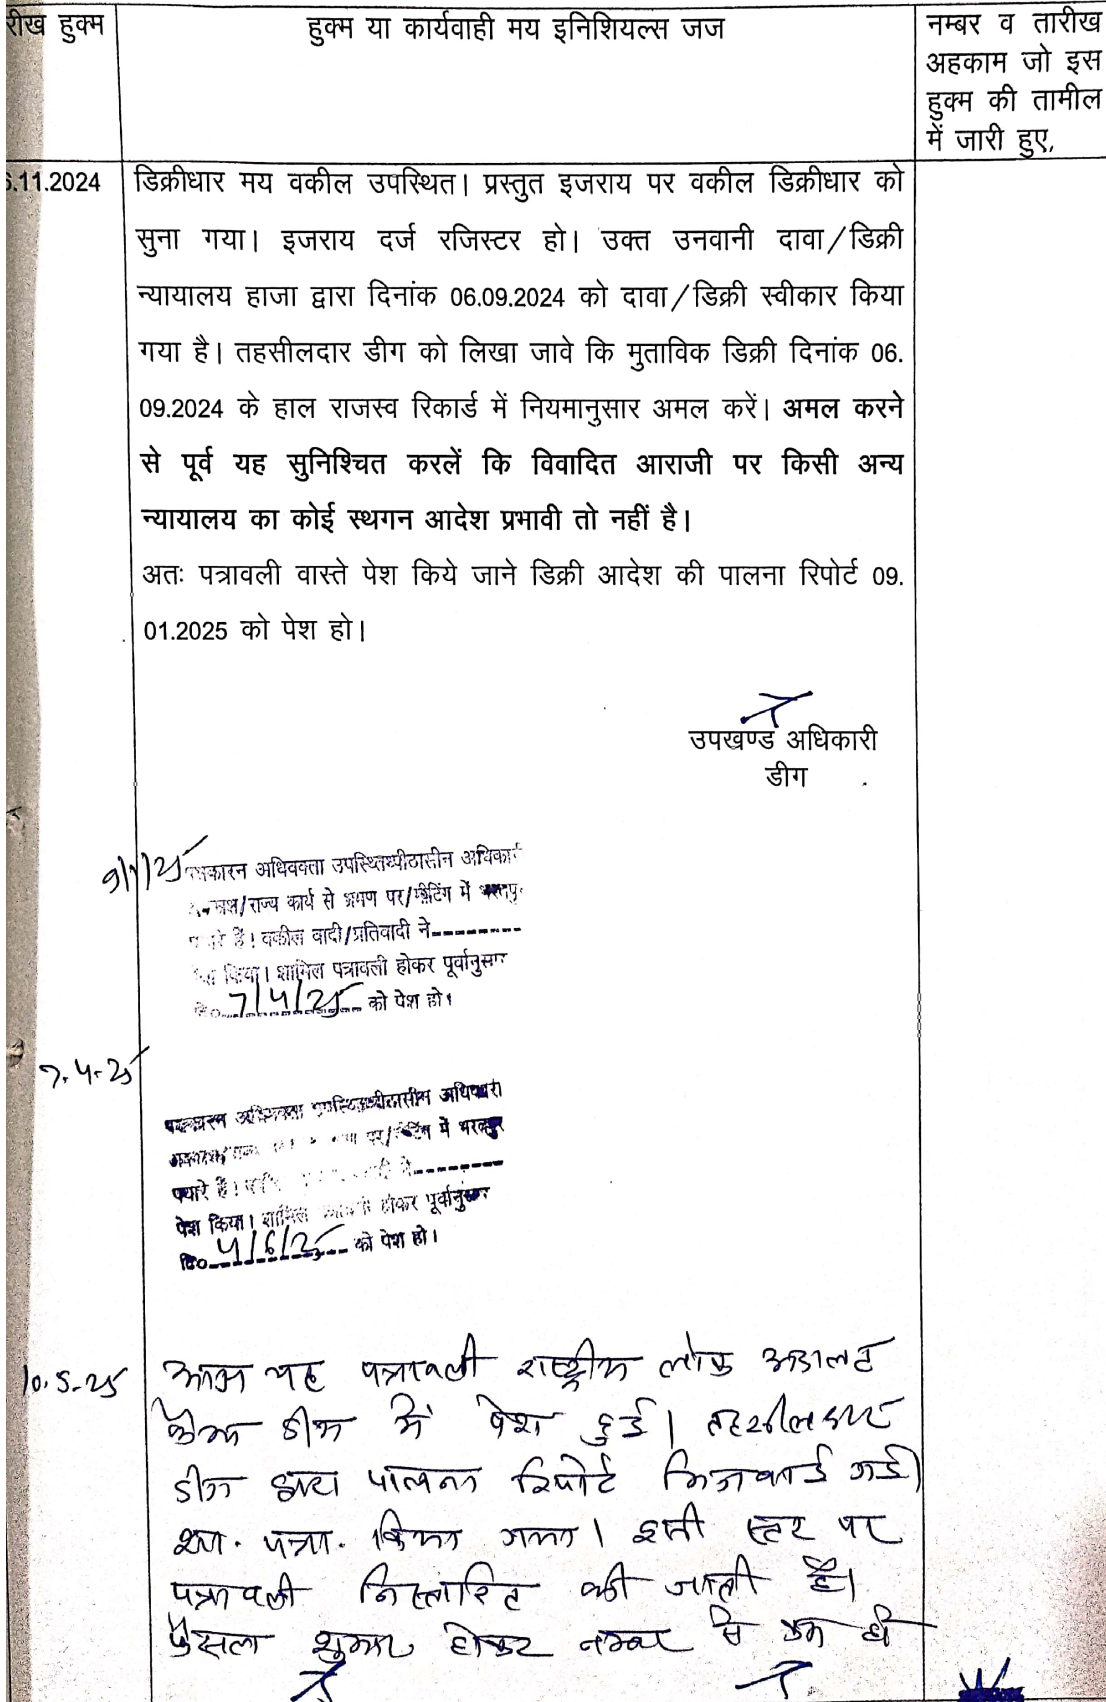 रीख हुक्म
हुक्म या कार्यवाही मय इनिशियल्स जज
नम्बर व तारीख
अहकाम जो इस
हुक्म की तामील
में जारी हुए,
.11.2024
डिक्रीधार मय वकील उपस्थित। प्रस्तुत इजराय पर वकील डिक्रीधार को
सुना गया। इजराय दर्ज रजिस्टर हो। उक्त उनवानी दावा/डिक्री
न्यायालय हाजा द्वारा दिनांक 06.09.2024 को दावा/डिक्री स्वीकार किया
गया है। तहसीलदार डीग को लिखा जावे कि मुताविक डिक्री दिनांक 06.
09.2024 के हाल राजस्व रिकार्ड में नियमानुसार अमल करें। अमल करने
से पूर्व यह सुनिश्चित करलें कि विवादित आराजी पर किसी अन्य
न्यायालय का कोई स्थगन आदेश प्रभावी तो नहीं है।
अतः पत्रावली वास्ते पेश किये जाने डिक्री आदेश की पालना रिपोर्ट 09.
01.2025 को पेश हो।
उपखण्ड अधिकारी
डीग
9/1/25
अधिवक्ता उपस्थित।पीठासीन
/राज्य कार्य से भ्रमण पर/मीटिंग में
हैं। वकील वादी/प्रतिवादी ने--------
किया। शामिल पत्रावली होकर पूर्वानुसार
7/4/25 को पेश हो।
7.4.25
अधिकारी
पर/मीटिंग में भरतपुर
पधारे हैं। ने--------
पेश किया। शामिल होकर पूर्वानुसार
दि० 4/6/25 को पेश हो।
10.5.25
आज यह पत्रावली राष्ट्रीय लोक अदालत
बैंच डीग में पेश हुई। तहसीलदार
डीग द्वारा पालना रिपोर्ट भिजवाई गई।
शा. पत्रा. किया गया। इसी स्तर पर
पत्रावली निस्तारित की जाती है।
फैसला शुमार होकर नम्बर से कम हो